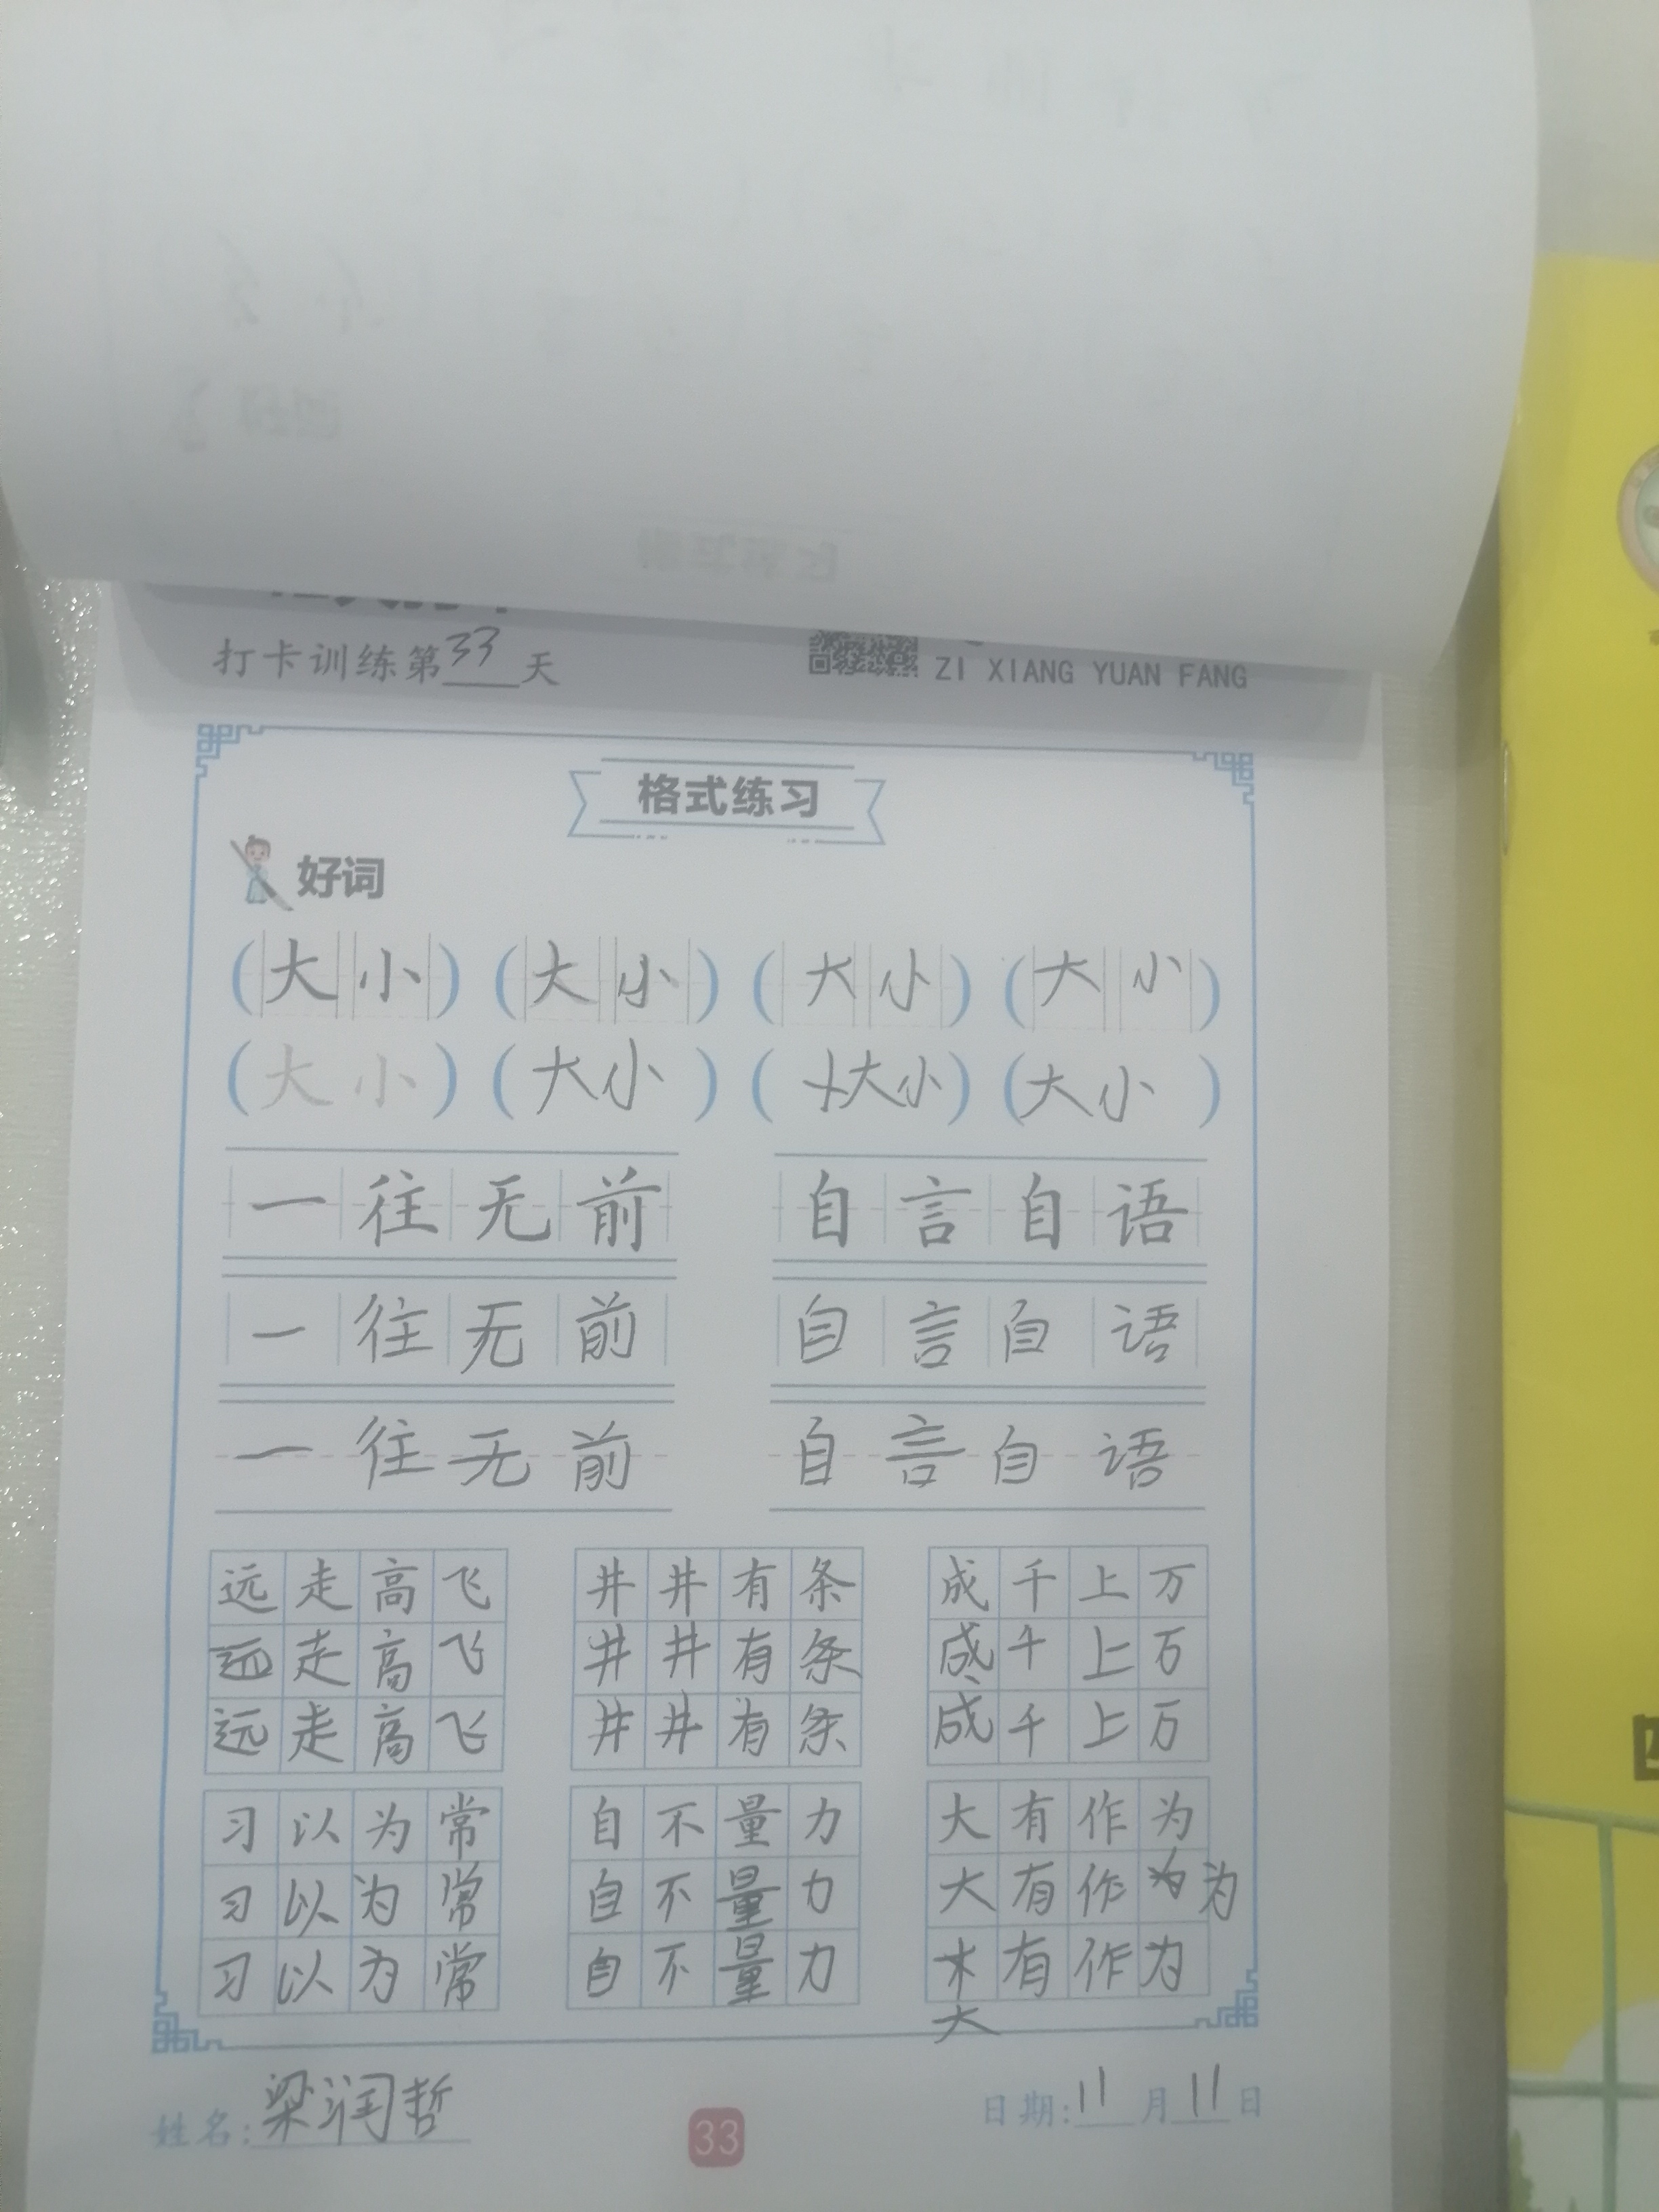 打卡训练第33天
ZI XIANG YUAN FANG
格式练习
好词
(大小) (大小) (大小) (大小)
(大小) (大小) (大小) (大小)
一往无前 自言自语
一往无前 自言自语
一往无前 自言自语
远走高飞 井井有条 成千上万
远走高飞 井井有条 成千上万
远走高飞 井井有条 成千上万
习以为常 自不量力 大有作为
习以为常 自不量力 大有作为为
习以为常 自不量力 木有作为
大
姓名:梁润哲 33 日期:11月11日
四